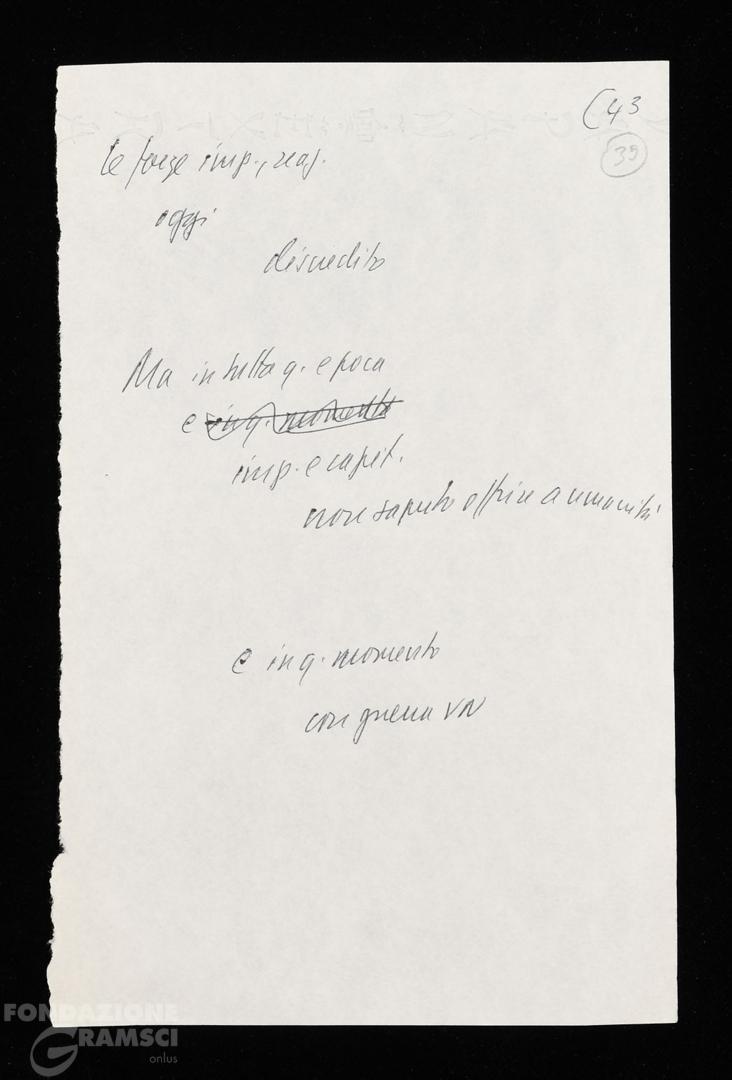 (43
39
le forze imp., reaz.
oggi
discredito
Ma in tutta q. epoca
e in q. momento
imp. e capit.
non saputo offrire a umanità
e in q. momento
con guerra VN
FONDAZIONE
GRAMSCI
onlus